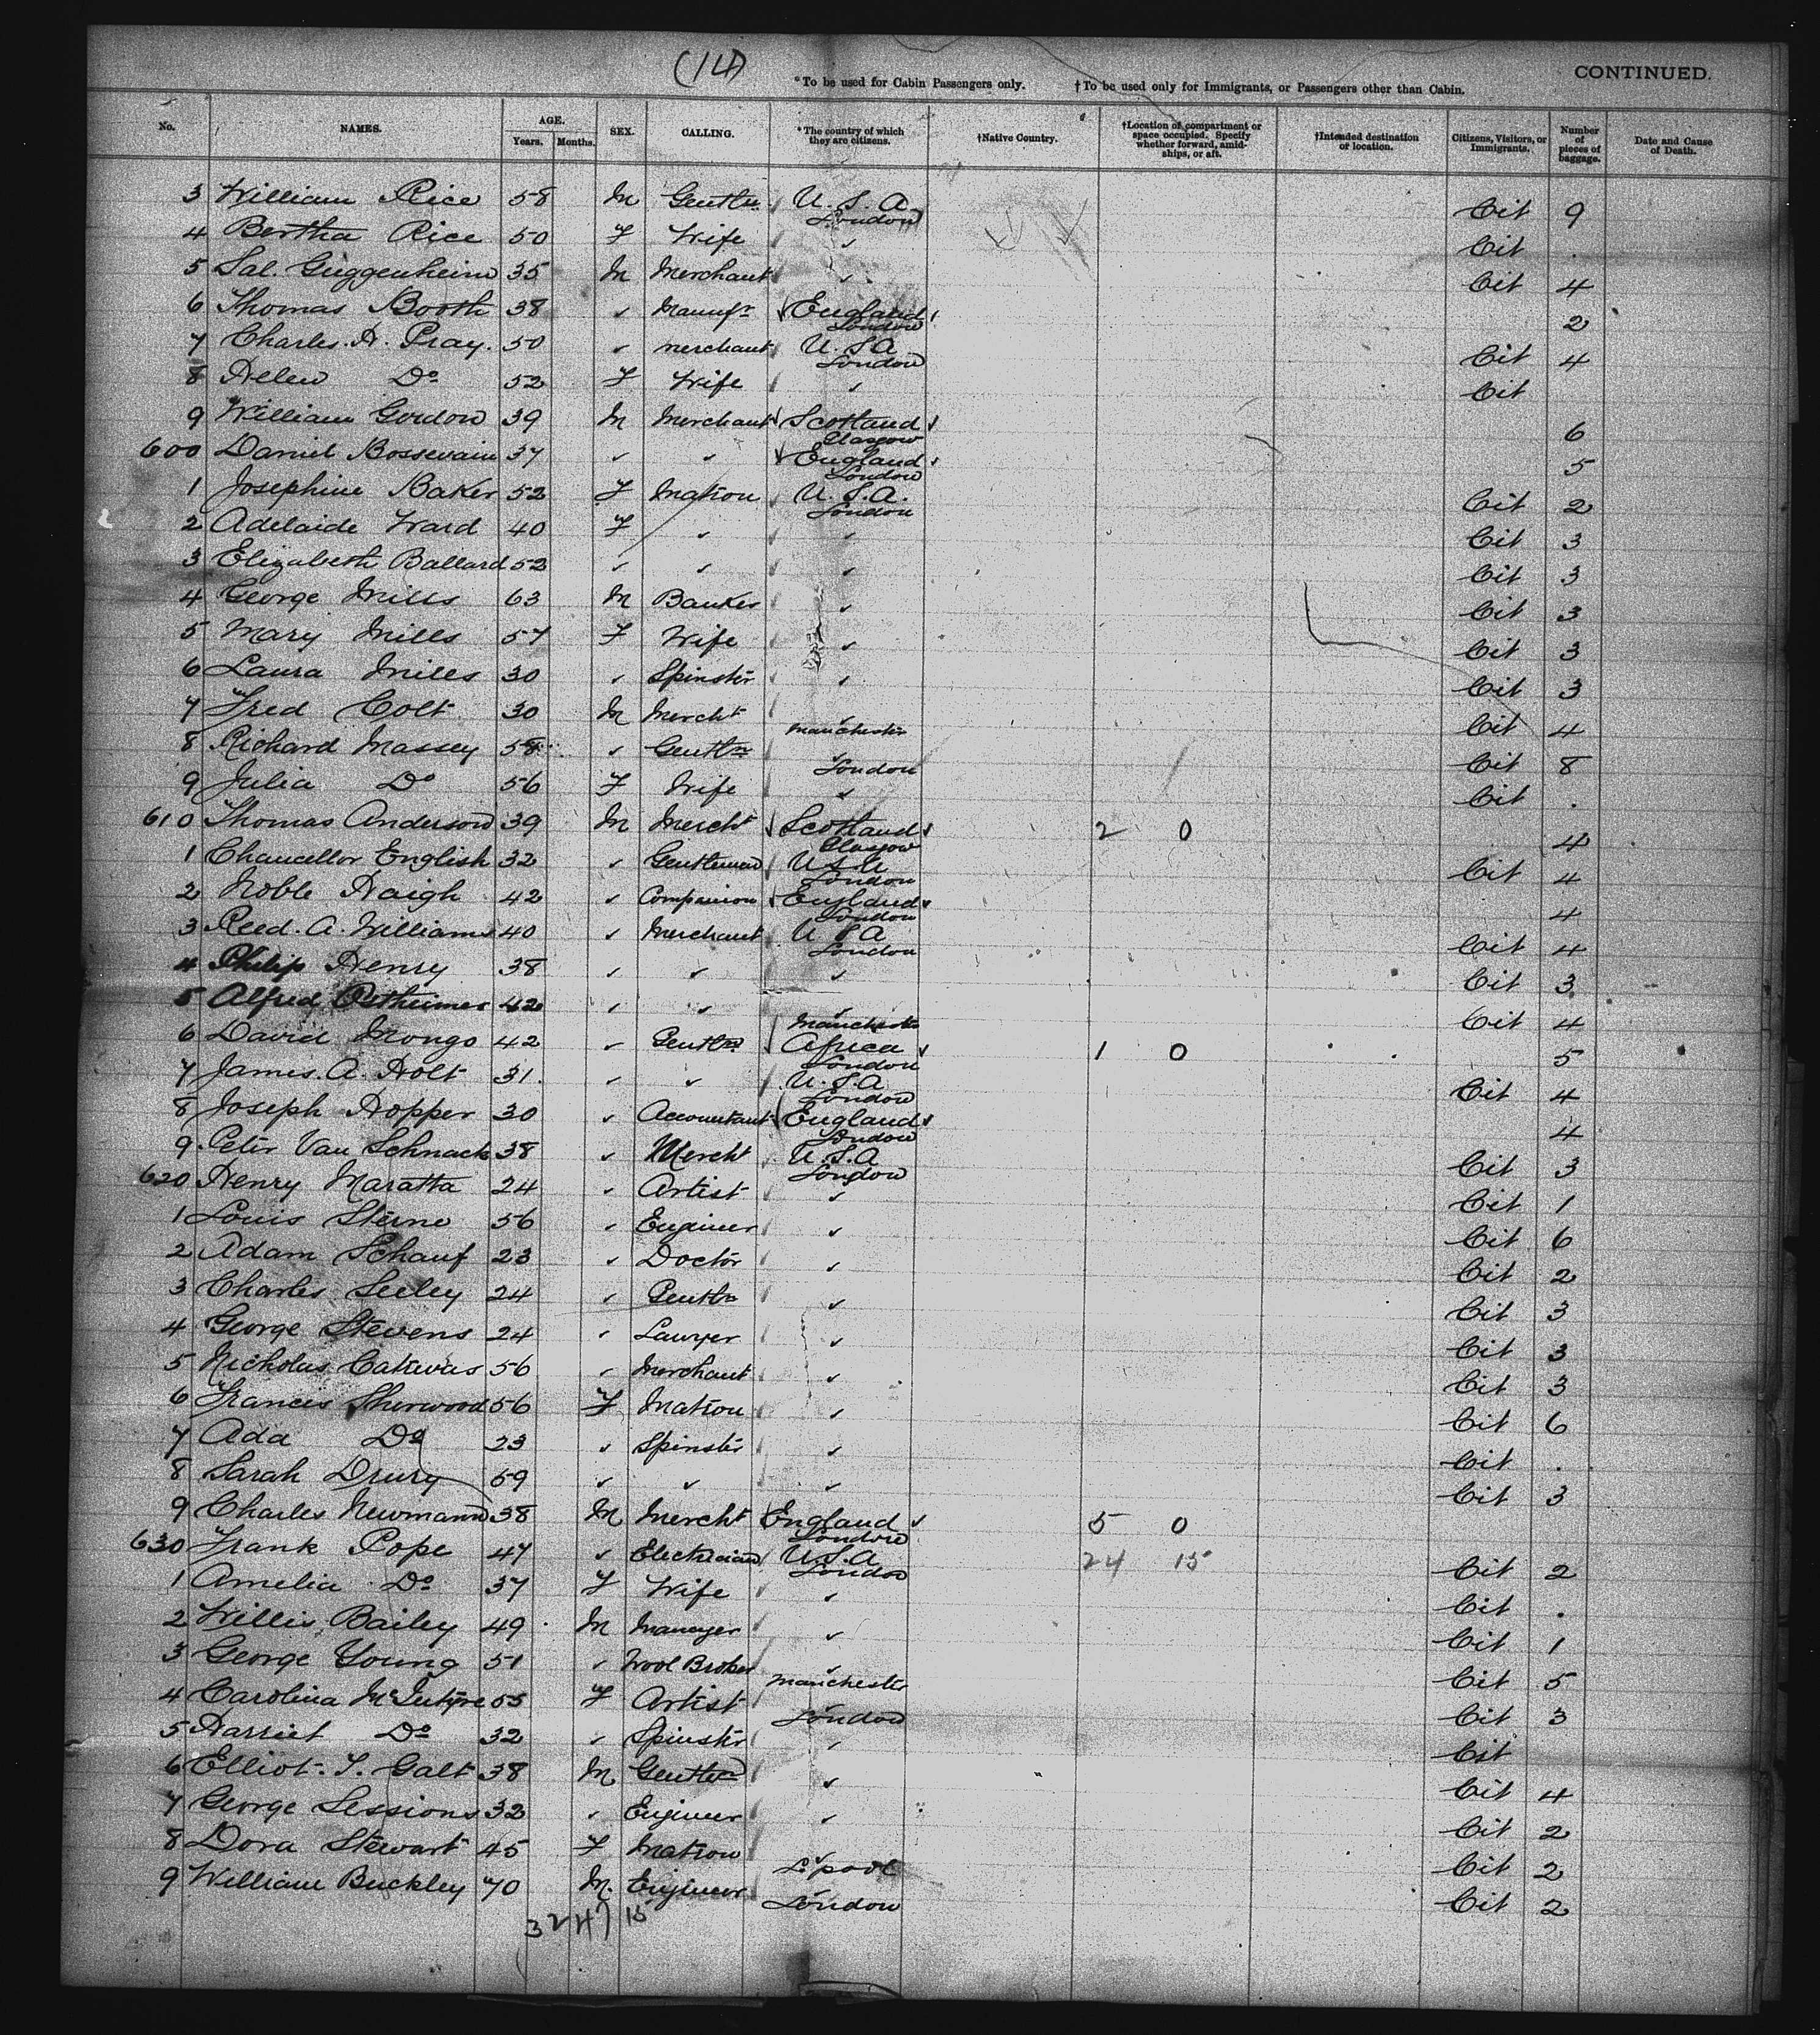 (14)
*To be used for Cabin Passengers only. †To be used only for Immigrants, or Passengers other than Cabin. CONTINUED.
No. NAMES. AGE. Years. Months. SEX. CALLING. *The country of which they are citizens. †Native Country. †Location of compartment or space occupied. Specify whether forward, amidships, or aft. †Intended destination or location. Citizens, Visitors, or Immigrants. Number of pieces of baggage. Date and Cause of Death.
3 William Rice 58 M Gentln U.S.A. London Cit 9
4 Bertha Rice 50 F Wife " Cit .
5 Sal. Guggenheim 35 M Merchant " Cit 4
6 Thomas Booth 38 " Manufr England London 2
7 Charles. H. Pray. 50 " Merchant U.S.A London Cit 4
8 Helen Do 52 F Wife " Cit
9 William Gordon 39 M Merchant Scotland Glasgow 6
600 Daniel Bossevain 37 " " England London 5
1 Josephine Baker 52 F Matron U.S.A. London Cit 2
2 Adelaide Ward 40 F " " Cit 3
3 Elizabeth Ballard 52 " " " Cit 3
4 George Mills 63 M Banker " Cit 3
5 Mary Mills 57 F Wife " Cit 3
6 Laura Mills 30 " Spinster " Cit 3
7 Fred Colt 30 M Mercht " Manchester Cit 4
8 Richard Massey 58 " Gentln " London Cit 8
9 Julia Do 56 F Wife " Cit .
610 Thomas Anderson 39 M Mercht Scotland Glasgow 2 0 4
1 Chancellor English 32 " Gentleman U.S.A London Cit 4
2 Noble Haigh 42 " Companion England London 4
3 Reed. A. Williams 40 " Merchant U.S.A London Cit 4
4 Philip Henry 38 " " " Cit 3
5 Alfred 42 " " " Manchester Cit 4
6 David Mongo 42 " Gentln Africa London 1 0 5
7 James. A. Holt 31. " " U.S.A London Cit 4
8 Joseph Hopper 30 " Accountant England London 4
9. Peter Van Schnack 38 " Mercht U.S.A London Cit 3
620 Henry Maratta 24 " Artist " Cit 1
1 Louis Sterne 56 " Engineer " Cit 6
2 Adam Schauf 23 " Doctor " Cit 2
3 Charles Seeley 24 " Gentln " Cit 3
4 George Stevens 24 " Lawyer " Cit 3
5 Nicholas 56 " Merchant " Cit 3
6 Francis Sherwood 56 F Matron " Cit 6
7 Ada Do 23 " Spinster " Cit .
8 Sarah Drury 59 " " " Cit 3
9 Charles Newmann 38 M Mercht England London 5 0
630 Frank Pope 47 " Electrician U.S.A London 24 15 Cit 2
1 Amelia Do 37 F Wife " Cit .
2 Willis Bailey 49 M Manager " Cit 1
3 George Young 51 " Wool Broker " Manchester Cit 5
4 Carolina McIntyre 55 F Artist " London Cit 3
5 Harriet Do 32 " Spinster " Cit
6 Elliot. T. Galt 38 M Gentln " Cit 4
7 George Sessions 32 " Engineer " Cit 2
8 Dora Stewart 45 F Matron " L'pool Cit 2
9 William Buckley 70 M. Engineer " London Cit 2
3247 15